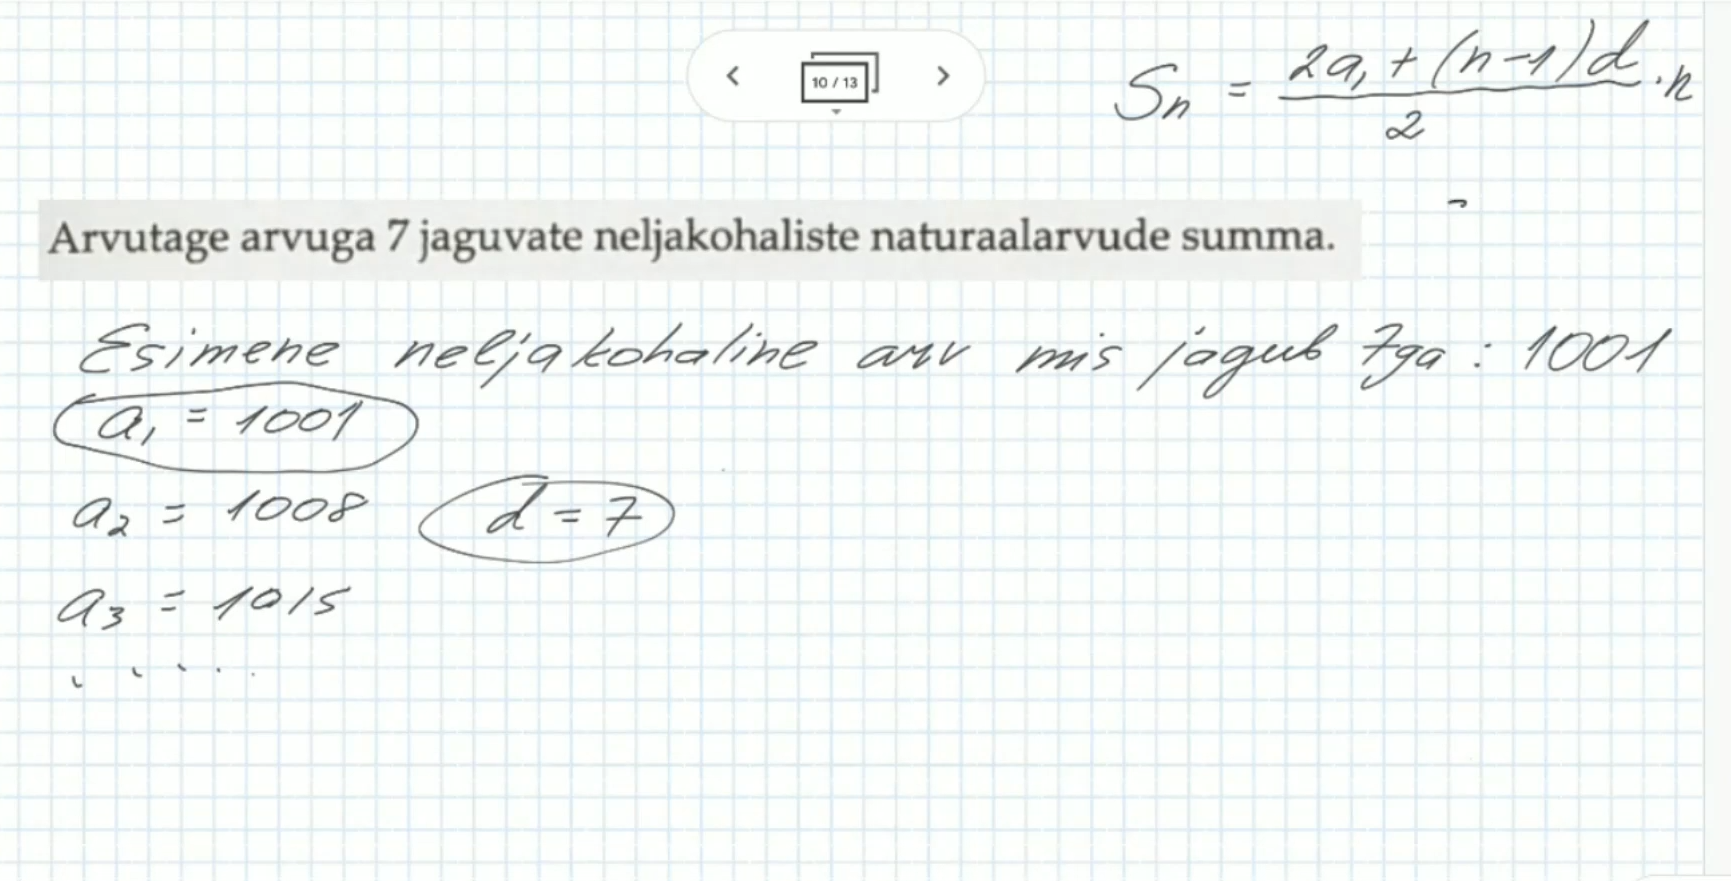 10 / 13
Sn = (2a₁ + (n-1)d)/2 · n
Arvutage arvuga 7 jaguvate neljakohaliste naturaalarvude summa.
Esimene neljakohaline arv mis jagub 7ga : 1001
a₁ = 1001
a₂ = 1008 d = 7
a₃ = 1015
. . . . .